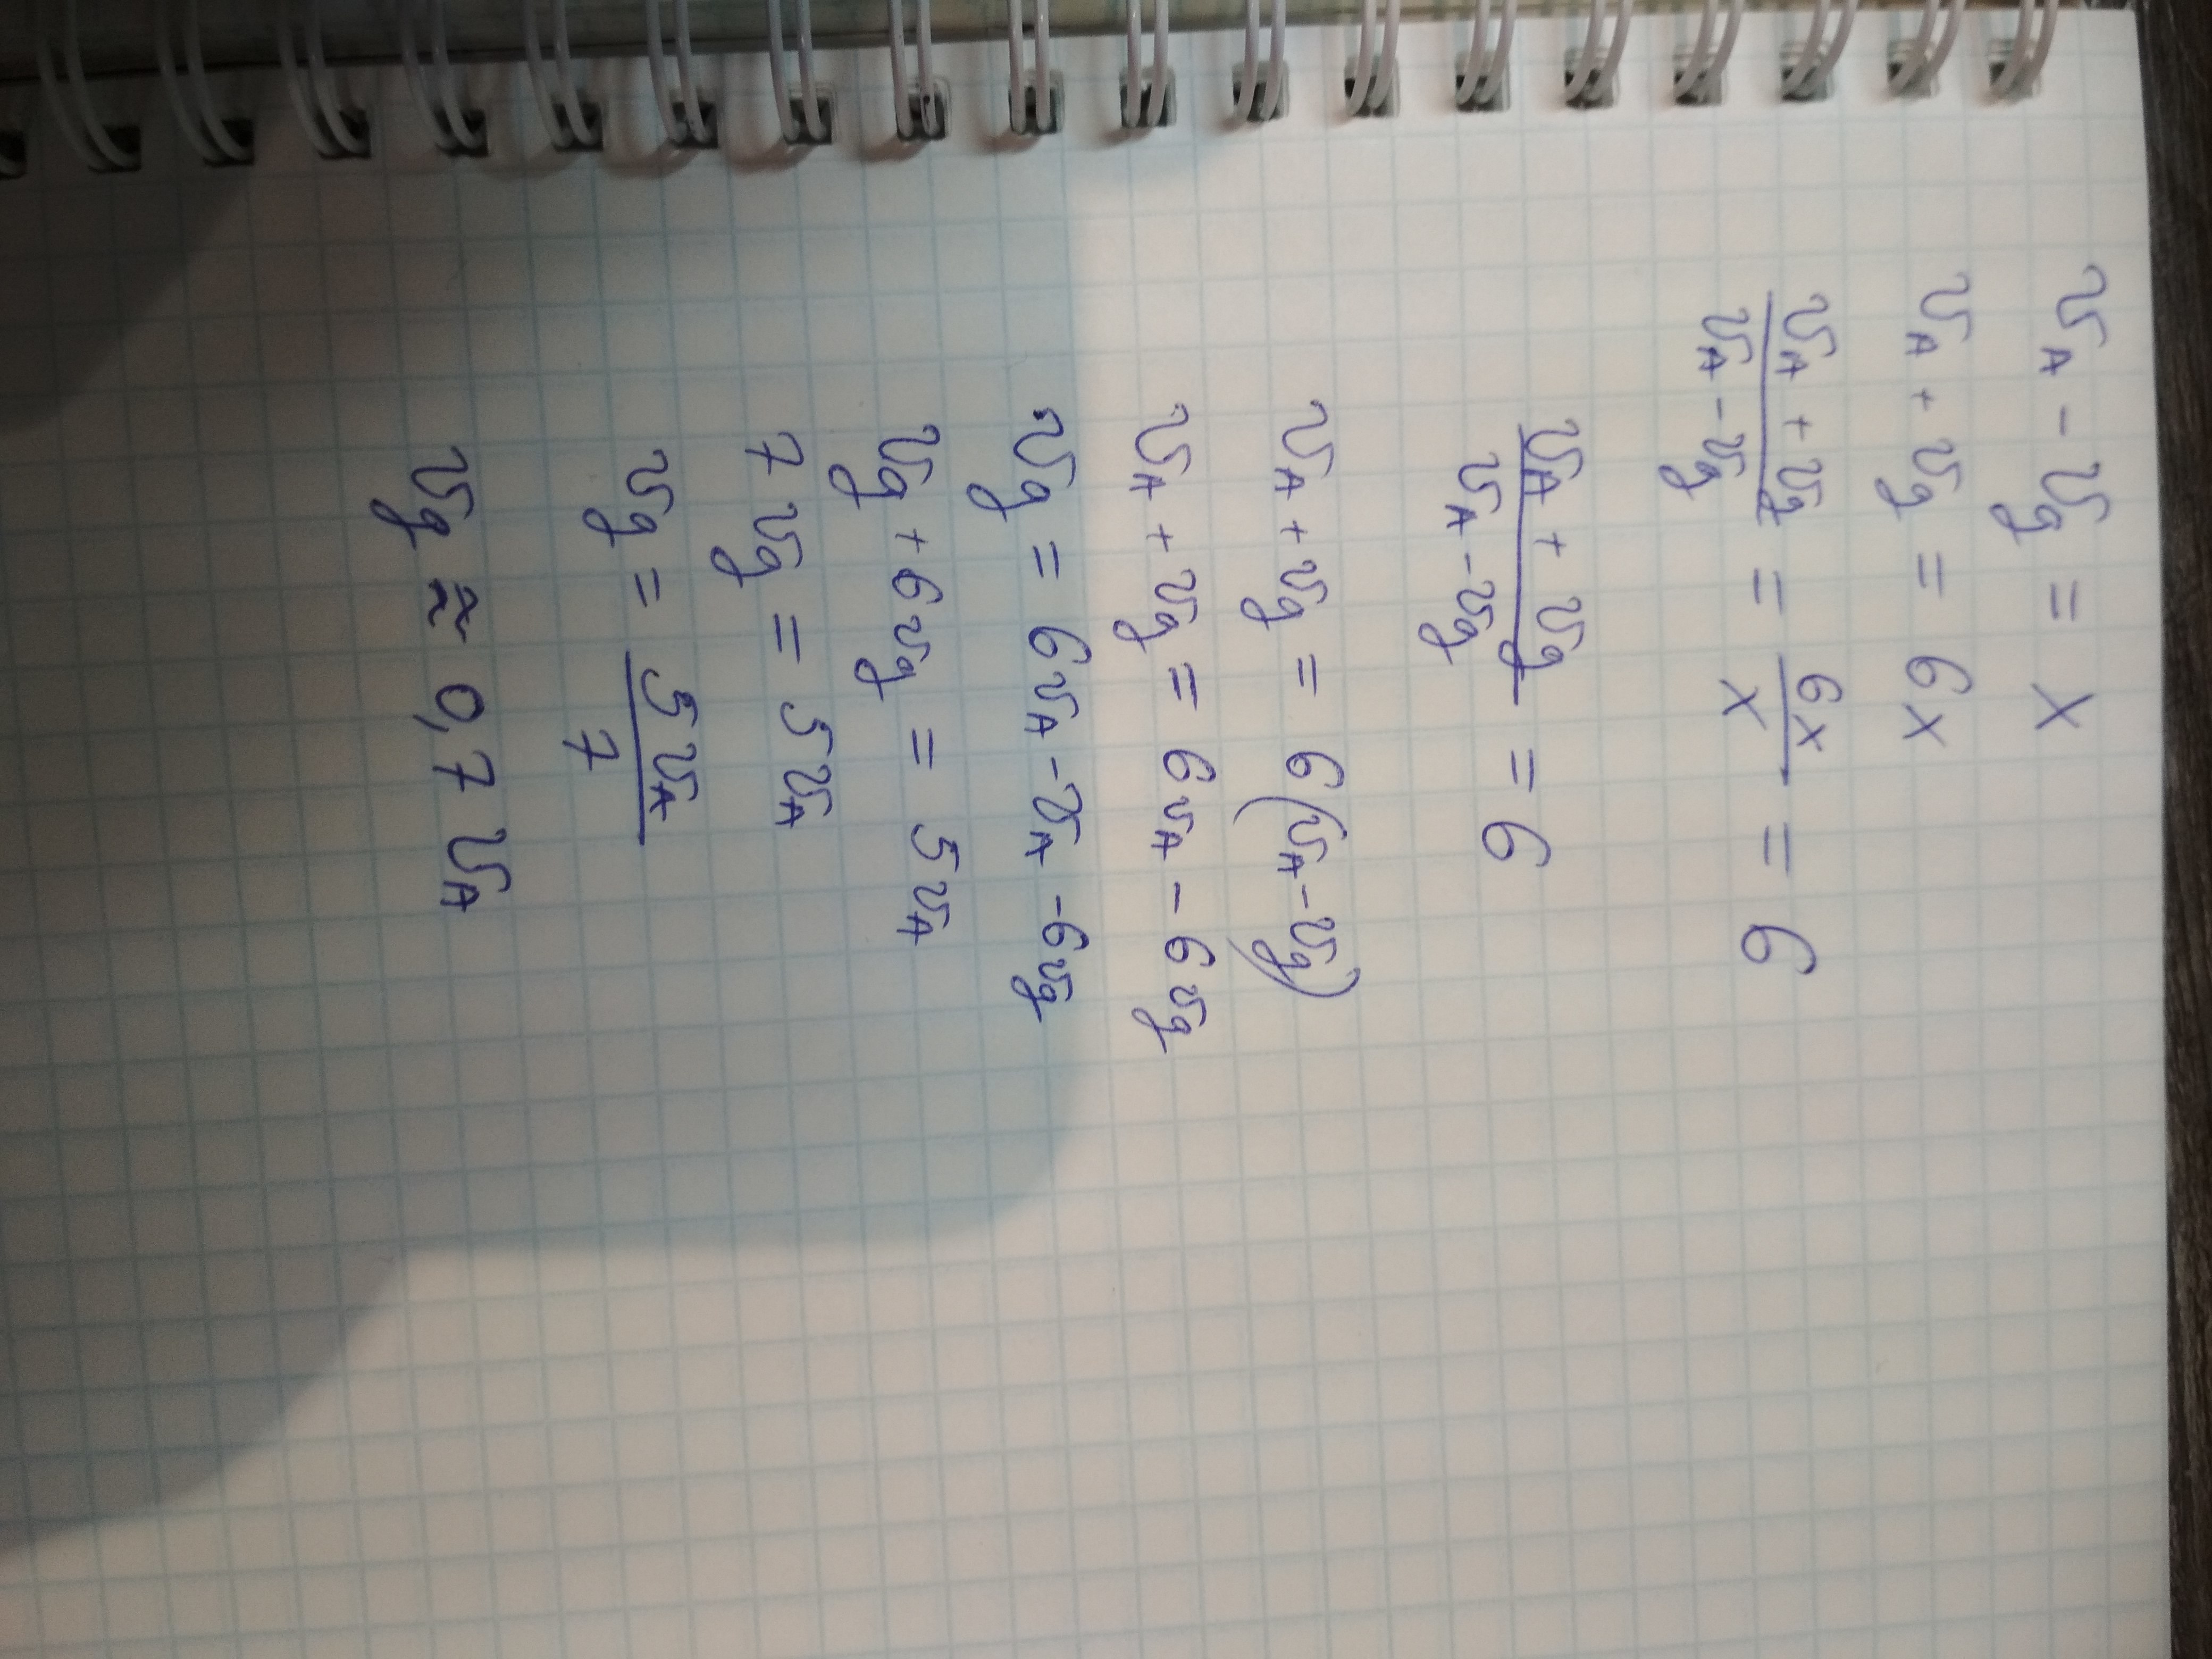 v_A - v_g = x
v_A + v_g = 6x
(v_A + v_g)/(v_A - v_g) = 6x/x = 6
(v_A + v_g)/(v_A - v_g) = 6
v_A + v_g = 6(v_A - v_g)
v_A + v_g = 6v_A - 6v_g
v_g = 6v_A - v_A - 6v_g
v_g + 6v_g = 5v_A
7v_g = 5v_A
v_g = 5v_A/7
v_g ≈ 0,7 v_A